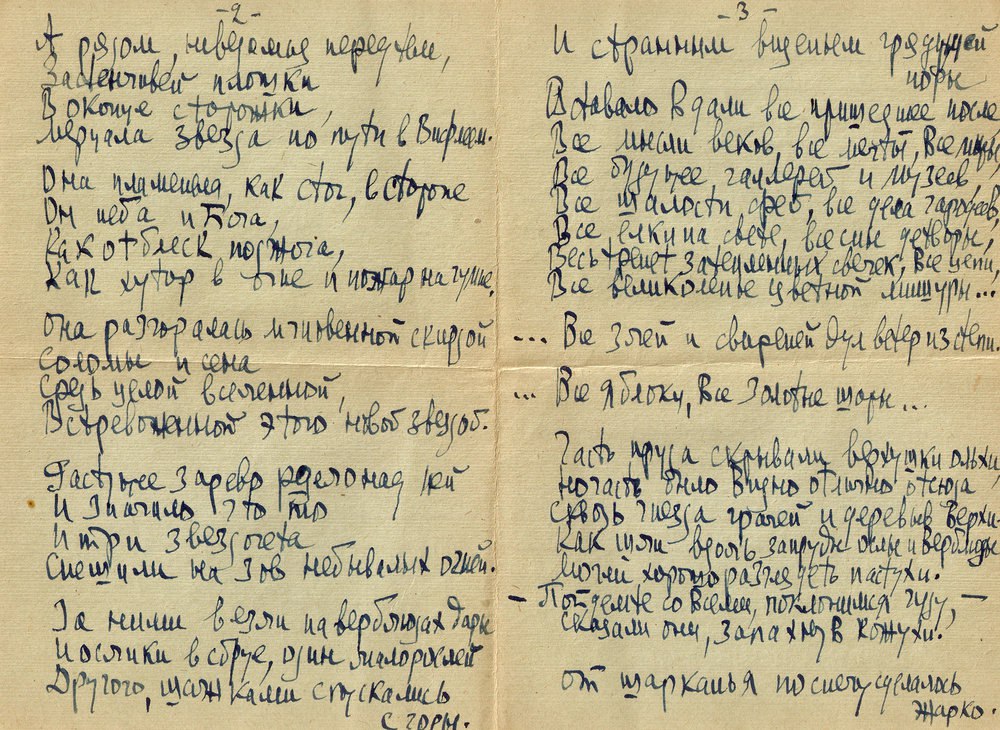 -2-
А рядом, неведомая перед тем,
Застенчивей плошки
В оконце сторожки,
Мерцала звезда по пути в Вифлеем.
Она пламенела, как стог, в стороне
От неба и Бога,
Как отблеск поджога,
Как хутор в огне и пожар на гумне.
Она разгоралась мгновенной скирдой
соломы и сена
средь целой вселенной,
Встревоженной этою новой звездой.
Растущее зарево рдело над ней
И значило что то
И три звездочета
Спешили на зов небывалых огней.
За ними везли на верблюдах дары
И ослики в сбруе, один малорослей
Другого, шажками спускались
с горы.
-3-
И странным виденьем грядущей
поры
Вставало вдали все пришедшее после
Все мысли веков, все мечты, все миры,
Все будущее галлерей и музеев,
Все шалости фей, все дела чародеев,
Все ёлки на свете, все сны детворы,
Весь трепет затепленных свечек, все цепи,
Все великолепье цветной мишуры...
... Все злей и свирепей дул ветер из степи.
... Все яблоки, все золотые шары...
Часть пруда скрывали верхушки ольхи,
Но часть было видно отлично отсюда
Сквозь гнезда грачей и деревьев верхи.
Как шли вдоль запруды ослы и верблюды
Могли хорошо разглядеть пастухи.
- Пойдемте со всеми, поклонимся чуду, -
сказали они, запахнув кожухи.
От шарканья по снегу сделалось
жарко.